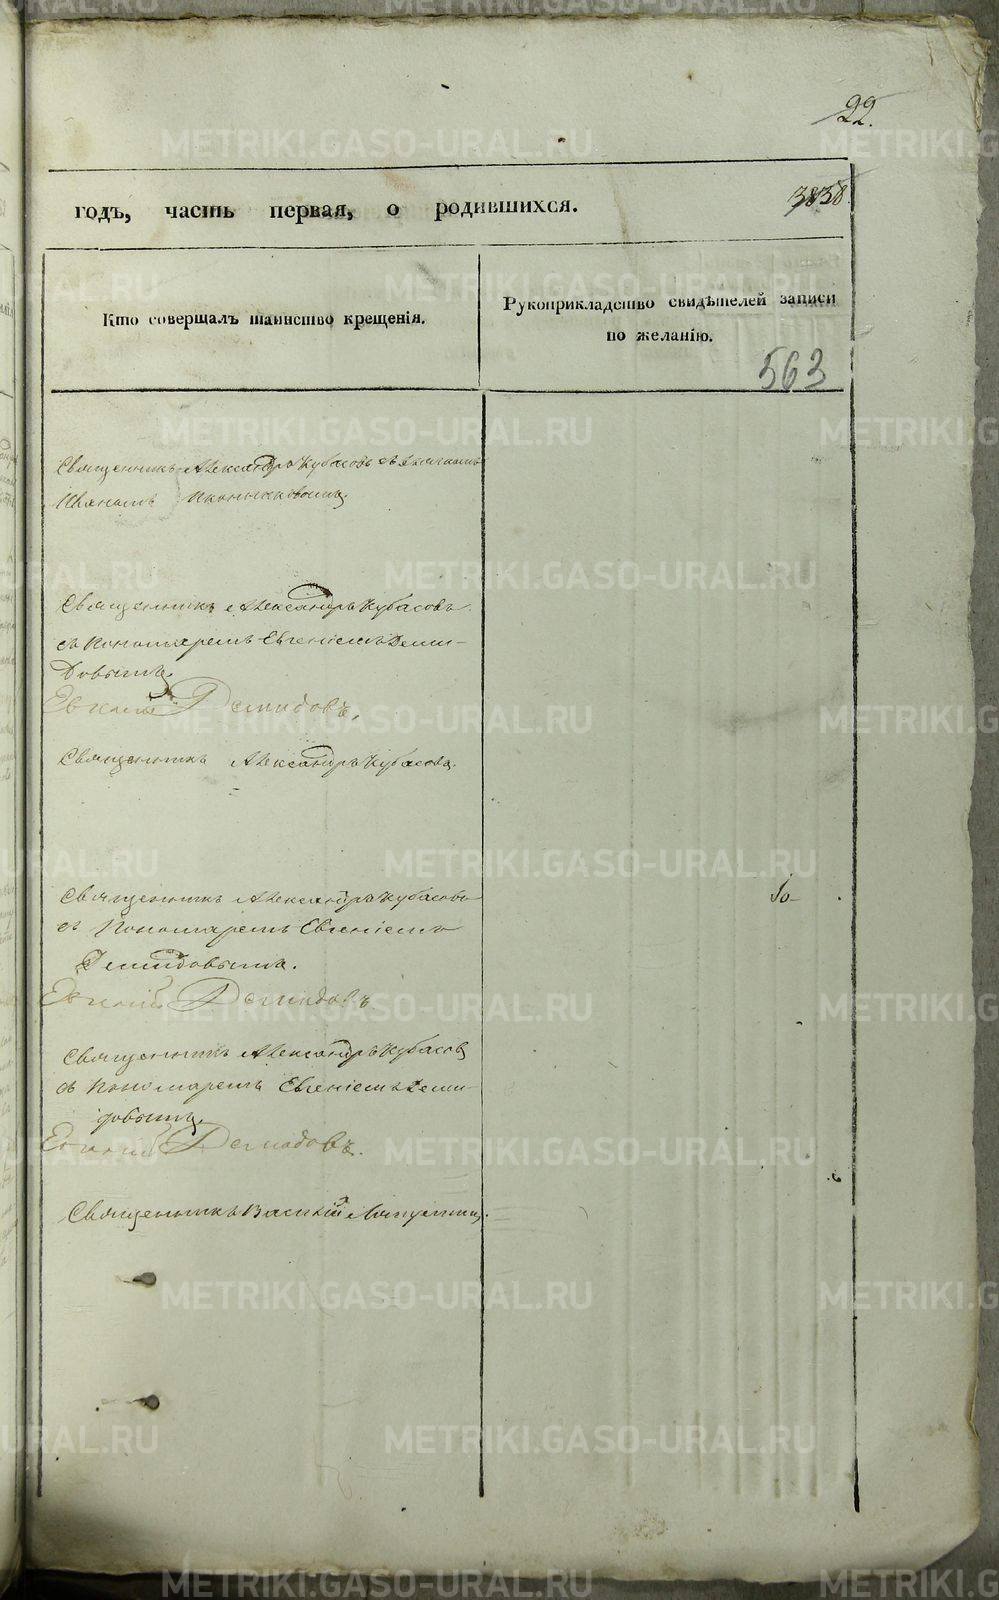 22.
годъ, часть первая, о родившихся.
Кто совершалъ таинство крещенія.
Рукоприкладство свидѣтелей записи
по желанію.
563
Священникъ Александръ Кубасовъ съ
Иконниковымъ
Священникъ Александръ Кубасовъ
съ Пономаремъ Евгеніемъ Деми-
довымъ.
Евгеній Демидовъ.
Священникъ Александръ Кубасовъ.
Священникъ Александръ Кубасовъ
съ Пономаремъ Евгеніемъ
Демидовымъ.
Евгеній Демидовъ
Священникъ Александръ Кубасовъ
съ Пономаремъ Евгеніемъ Деми-
довымъ.
Евгеній Демидовъ.
Священникъ Василій
METRIKI.GASO-URAL.RU